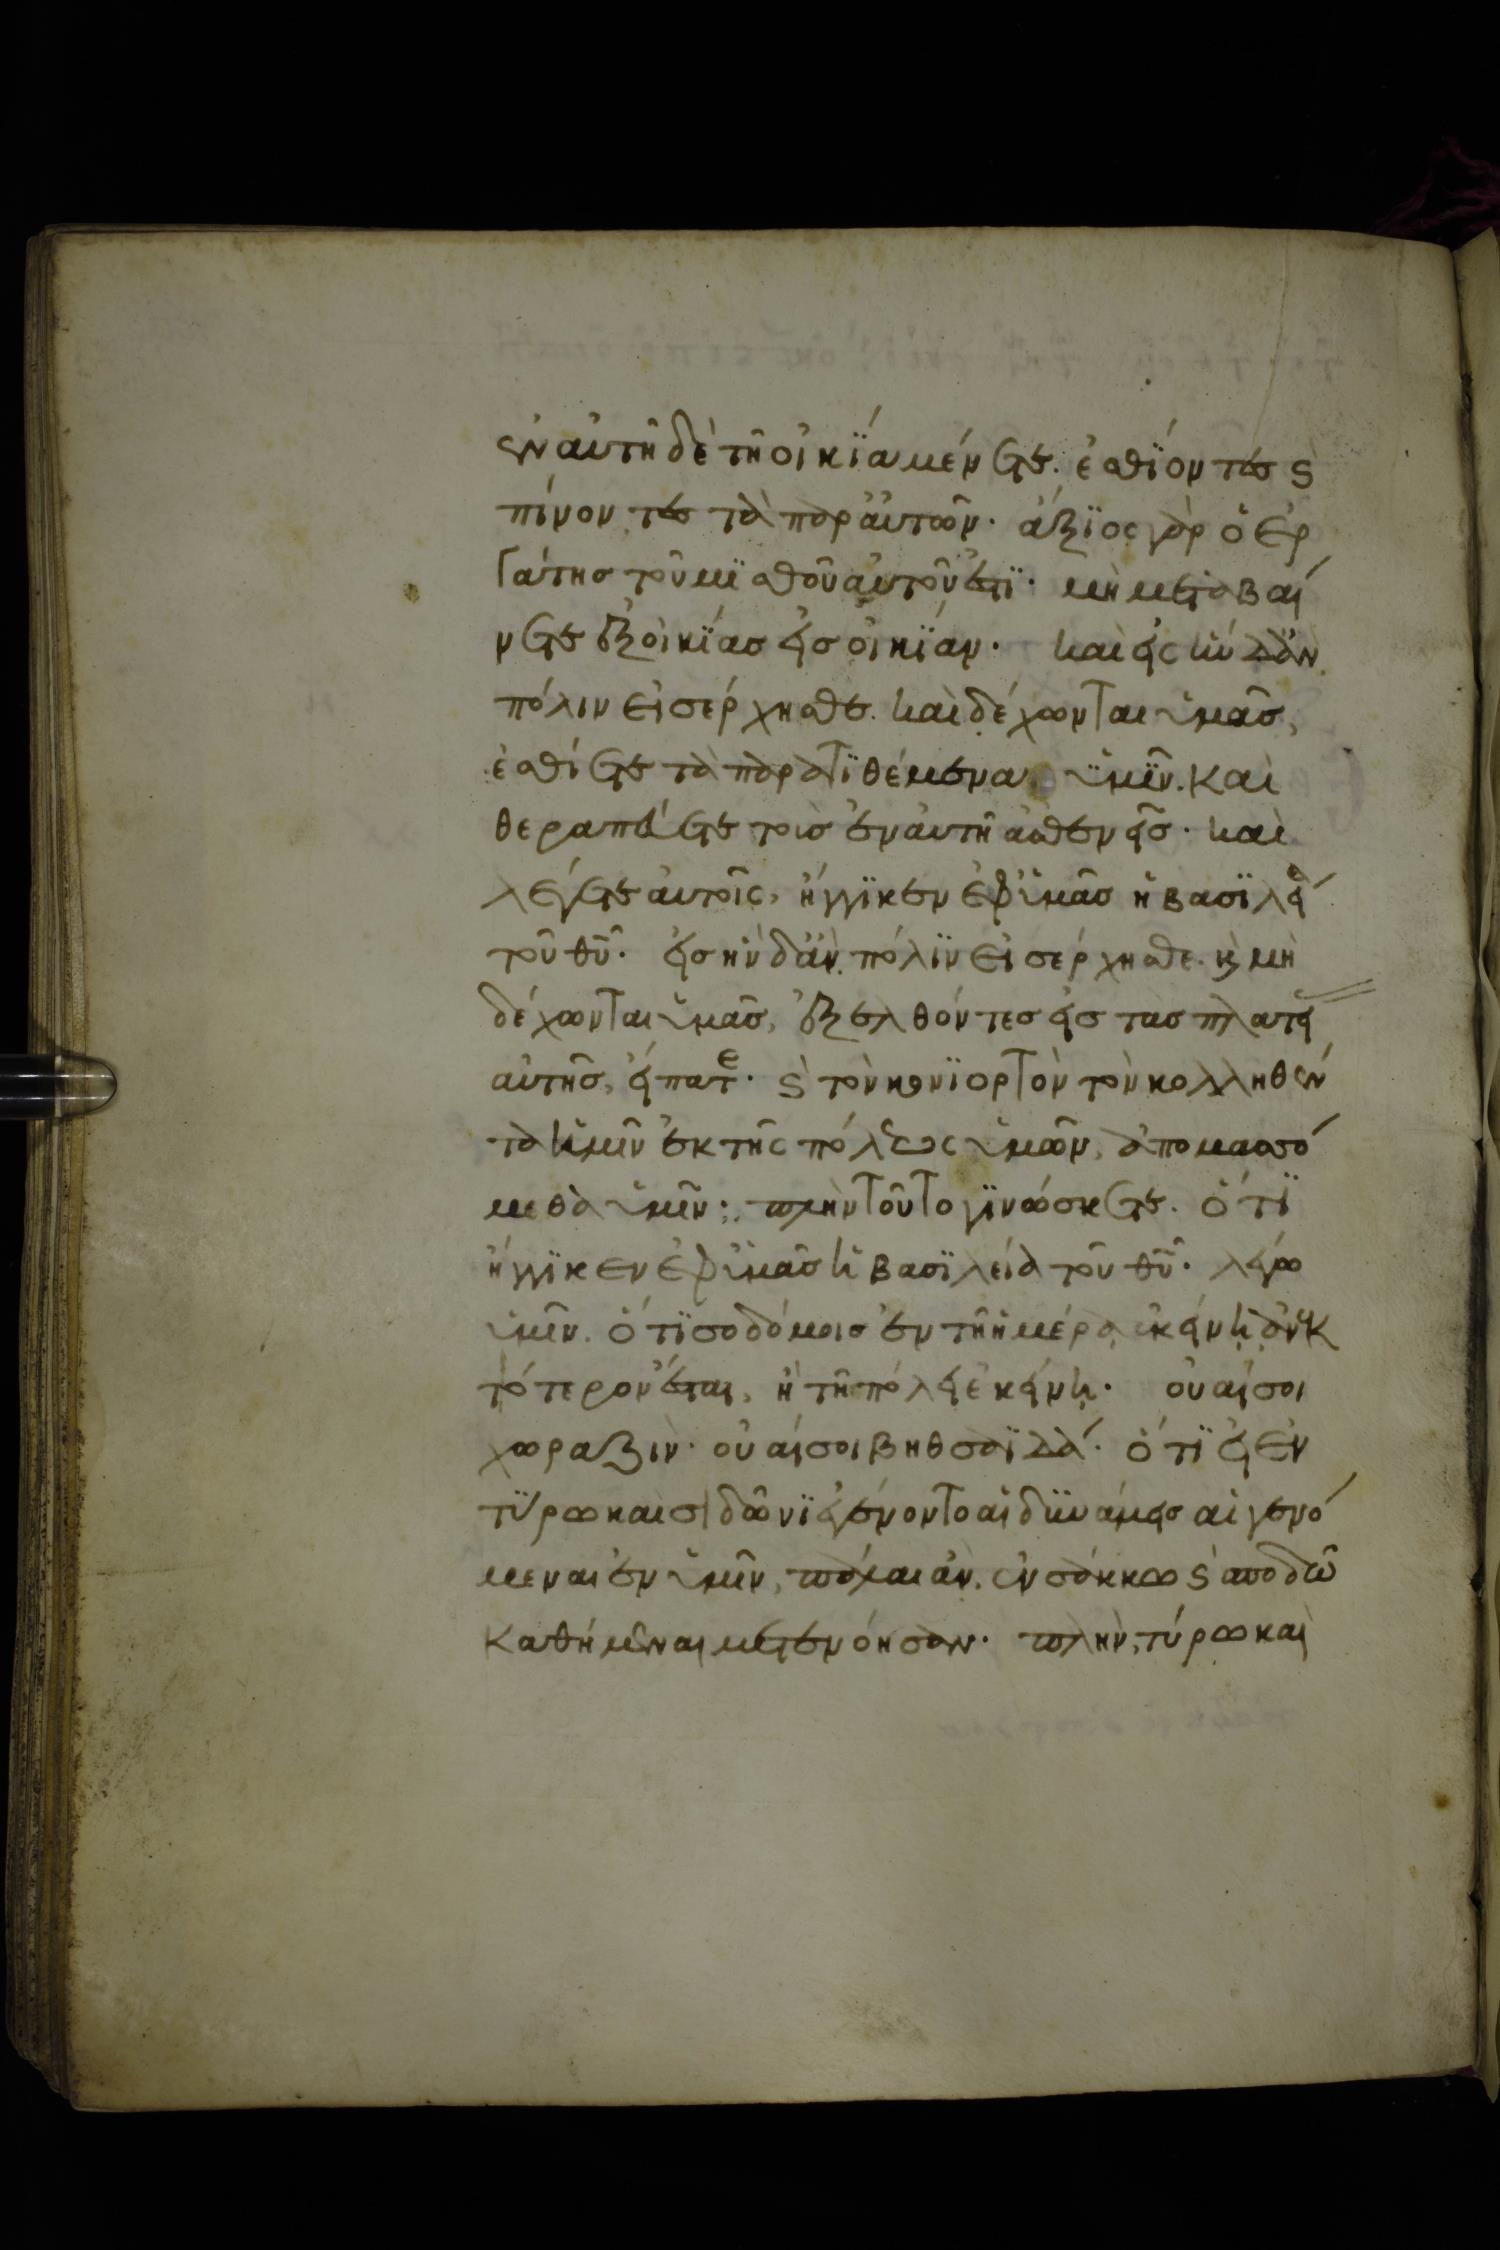 ἐν αὐτῆ δὲ τῆ οἰκΐα μένετε. ἐσθΐοντες ϛ
πίνοντες τὰ παρ' αὐτῶν· ἄξϊος γὰρ ὁ ἐρ
γάτησ τοῦ μϊσθοῦ αὐτοῦ ἐστϊ· μὴ μεταβαί
νετε ἐξ οἰκΐασ εἰσ οἰκΐαν· καὶ εἰς ἣν δἂν
πόλιν εἰσέρχησθε. καὶ δέχωνται ὑμᾶσ,
ἐσθίετε τὰ παρατϊθέμενα ὑμῖν. καὶ
θεραπεύετε τοὺσ ἐν αὐτῆ ἀσθενεῖσ· καὶ
λέγετε αὐτοῖς, ἤγγϊκεν ἐφ' ὑμᾶσ ἡ βασϊλεί
τοῦ θυ· εἰσ ἣν δἂν πόλϊν εἰσέρχησθε. κ μὴ
δέχωνται ὑμᾶσ, ἐξελθόντεσ εἰσ τὰσ πλατεί
αὐτῆσ, εἴπατε· ϛ τὸν κονϊορτὸν τὸν κολληθέν
τα ἡμῖν ἐκ τῆς πόλεως ὑμῶν, ἀπομασσό
μεθα ὑμῖν· πλὴν τοῦτο γϊνώσκετε. ὅτϊ
ἤγγϊκεν ἐφ' ὑμᾶσ ἡ βασϊλεία τοῦ θυ· λέγω
ὑμῖν. ὅτϊ σοδόμοισ ἐν τῆ ἡμέρα ἐκείνη ἀνεκ
τότερον ἔσται, ἢ τῆ πόλει ἐκείνη· οὐαί σοι
χωραζιν· οὐαί σοι βηθσαϊδά· ὅτϊ εἰ ἐν
τΰρω καὶ σιδῶνϊ ἐγένοντο αἱ δυνάμεισ αἱ γενό
μεναι ἐν ὑμῖν, πάλαι ἂν ἐν σάκκω ϛ σποδῶ
καθήμεναι μετενόησαν· πλὴν, τύρω καὶ